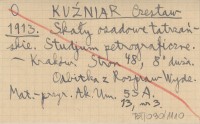 O KUŹNIAR Czesław
1913. Skały osadowe tatrzań-
skie. Studyum petrograficzne.
– Kraków. Stron 48, 8° duża.
Odbitka z Rozpraw Wydz.
Mat.-przyr. Ak. Um. 53 A.
13, nr 3.